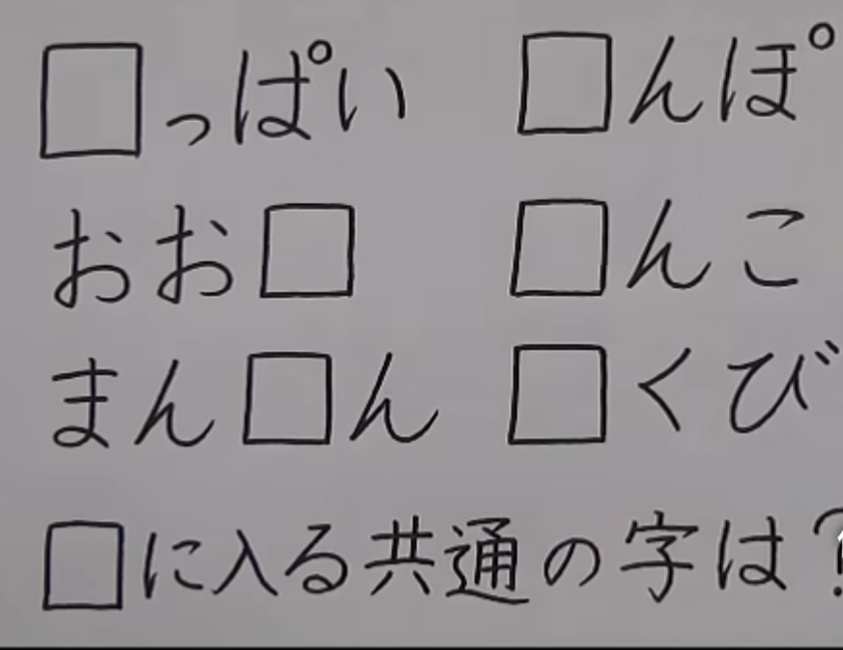 □っぱい □んぽ
おお□ □んこ
まん□ん □くび
□に入る共通の字は?